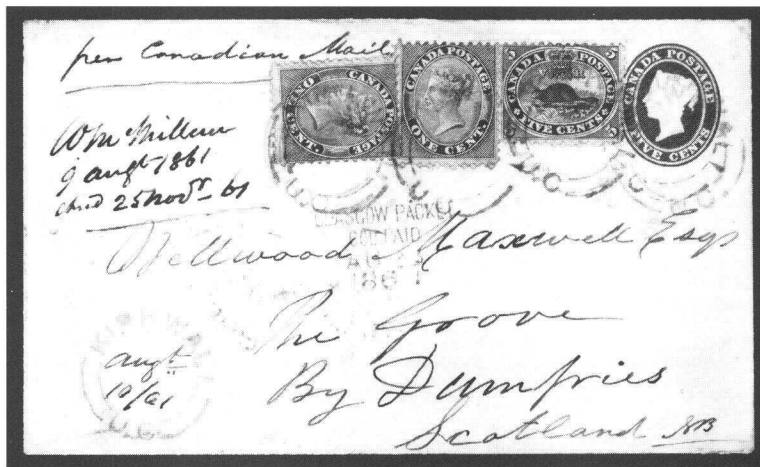 per Canadian Mail
CANADA POSTAGE
ONE CENT.
CANADA POSTAGE
ONE CENT.
5 CANADA POSTAGE 5
FIVE CENTS
CANADA POSTAGE
FIVE CENTS
Wm Millew
9 augt 1861
25 Novr 61
GLASGOW PACKET
PAID
AU
1861
Wellwood Maxwell Esqr
The Grove
KIRKWALL
augt
10/61
U.C.
By Dumfries
Scotland NB